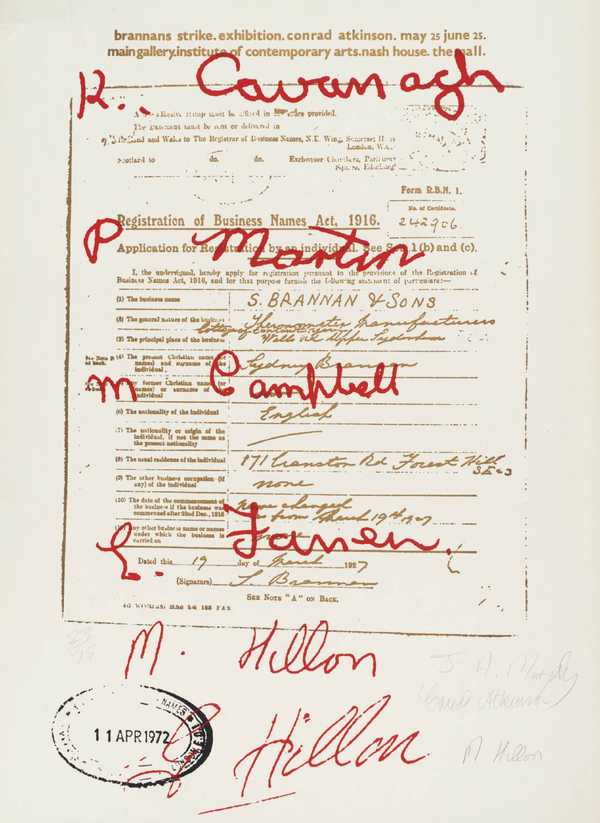 brannans strike.exhibition.conrad atkinson. may 25 june 25.
main gallery.institute of contemporary arts.nash house. the mall.
K. Cavanagh
must be affixed in provided.
The Statement must be sent or delivered in
England and Wales to The Registrar of Business Names, N.E. Wing, Somerset House
London, W.C.
Scotland to do. do. Exchequer Chambers, Parliament
Square, Edinburgh
Form R.B.N. 1.
No. of Certificate.
242906
Registration of Business Names Act, 1916.
P Martin
Application for Registration by an individual. See Sec. 1 (b) and (c).
I, the undersigned, hereby apply for registration pursuant to the provisions of the Registration of
Business Names Act, 1916, and for that purpose furnish the following statement of particulars:—
(1) The business name S. BRANNAN & SONS
(2) The general nature of the business Thermometer Manufacturers
(3) The principal place of the business Wells Rd Upper Sydenham
(4) The present Christian name (or names) and surname of the individual. Sydney Brannan
M Campbell
any former Christian name (or names) or surname of
(6) The nationality of the individual English
(7) The nationality or origin of the individual, if not the same as the present nationality
(8) The usual residence of the individual 171 Cranston Rd Forest Hill SE23
(9) The other business occupation (if any) of the individual none
(10) The date of the commencement of the business if the business was commenced after 22nd Dec., 1916 name changed from March 19th 1927
any other business name or names under which the business is carried on
E. Fanen.
Dated this 19 day of March 1927
(Signature) S. Brannan
SEE NOTE "A" ON BACK.
M. Hillon
Hillon
NAMES
11 APR 1972
LONDON
J. H. Murphy
Conrad Atkinson
M Hillon